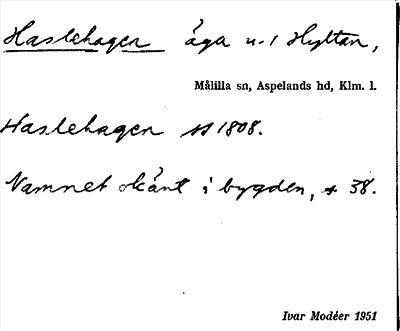 Haslehagen äga u. l Hyltan,
Målilla sn, Aspelands hd, Klm. l.
Haslehagen ss 1808.
Namnet okänt i bygden, s. 38.
Ivar Modéer 1951